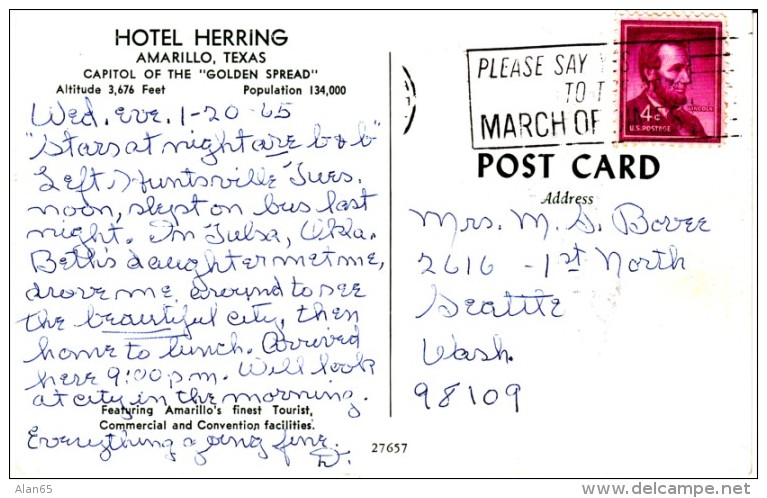 HOTEL HERRING
AMARILLO, TEXAS
CAPITOL OF THE "GOLDEN SPREAD"
Altitude 3,676 Feet Population 134,000
Wed. eve. 1-20-65
"Stars at night are b & b"
Left Huntsville Tues.
noon, slept on bus last
night. In Tulsa, Okla.
Beth's daughter met me,
drove me around to see
the beautiful city, then
home to lunch. Arrived
here 9:00 pm. Will look
at city in the morning.
Featuring Amarillo's finest Tourist,
Commercial and Convention facilities.
Everything going fine.
D.
27657
PLEASE SAY
TO T
MARCH OF
LINCOLN
4¢
U.S. POSTAGE
POST CARD
Address
Mrs. M. S. Bovee
2616 - 1st North
Seattle
Wash.
98109
Alan65
www.delcampe.net